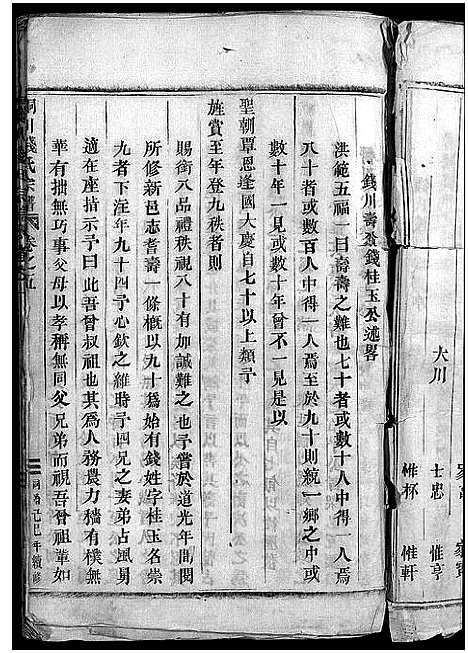 錢川壽翁錢桂玉公述畧
洪範五福一曰壽壽之難也七十者或數十人中得一人焉
八十者或數百人中得一人焉至於九十則統一鄉之中或
數十年一見或數十年曾不一見是以
聖朝覃恩逢國大慶自七十以上類予
旌賞至年登九秩者則
賜銜八品禮秩視八十有加誠難之也予嘗於道光年間閱
所修新邑志耆壽一條概以九十為始有錢姓字桂玉名崇
九者下注年九十四予心欽之維時予四兄之妻弟占風舅
適在座指示予曰此吾曾叔祖也其為人務農力穡有樸無
華有拙無巧事父母以孝稱無同父兄弟而視吾曾祖輩如
錢氏宗譜 卷之五
己巳年續修
大川
士忠
惟杯
惟亨
惟軒